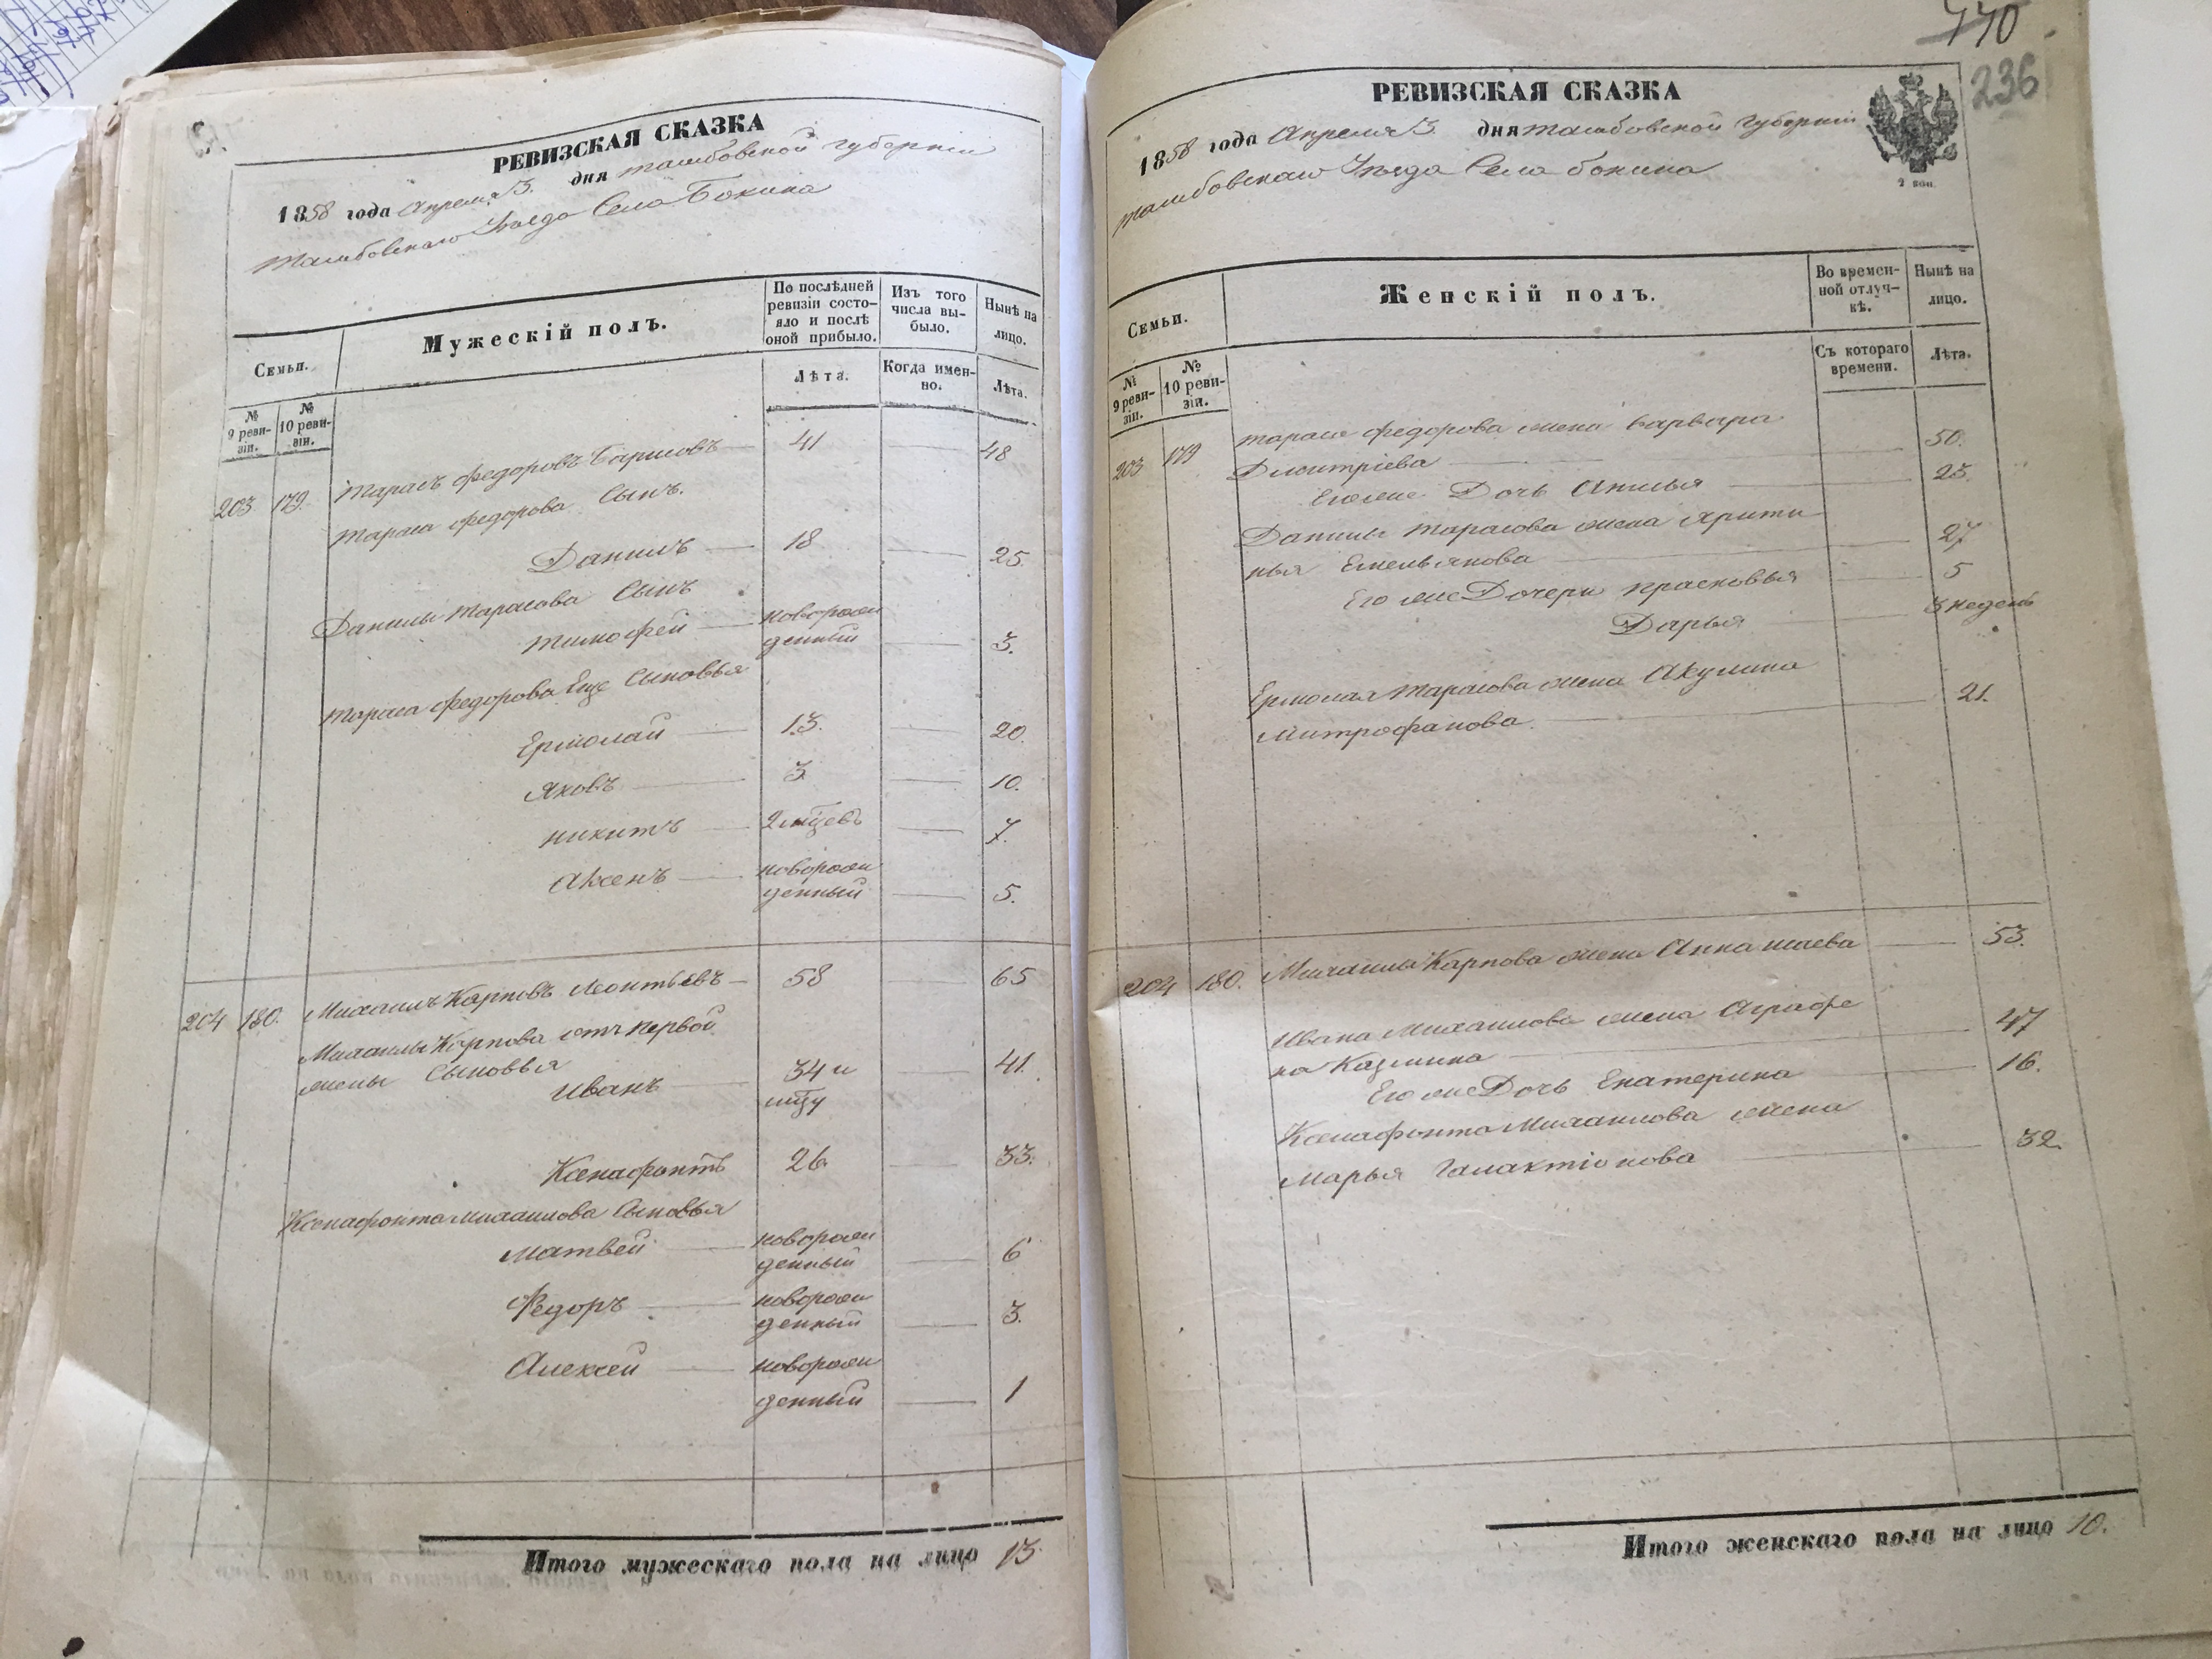 РЕВИЗСКАЯ СКАЗКА
1858 года Апреля 3. дня тамбовской губернии
тамбовскаго Уезда Села Бокина
Семьи.
Мужескій полъ.
По послѣдней ревизіи состояло и послѣ оной прибыло.
Изъ того числа выбыло.
Нынѣ на лицо.
№ 9 ревизіи.
№ 10 ревизіи.
Лѣта.
Когда именно.
Лѣта.
203 179. Тарасъ федоровъ Борисовъ 41 48
Тараса федорова Сынъ.
Данилъ 18 25.
Данилы Тарасова Сынъ
тимофей новорож
денный 3.
Тараса федорова Еще Сыновья
Ермолай 13. 20.
Яковъ 3. 10.
никитъ 2 мцсевъ 7.
Аксенъ новорож
денный 5.
204 180. Михаилъ Карповъ Леонтьевъ 58 65
Михаилы Карпова отъ первой
жены Сыновья
Иванъ 34 и 41.
мцу
Ксенафонтъ 26 33.
Ксенафонта михаилова Сыновья
матвей новорож
денный 6
Федоръ новорож
денный 3.
Алексей новорож
денный 1
Итого мужескаго пола на лицо 13.
770
236
РЕВИЗСКАЯ СКАЗКА
1858 года Апреля 3. дня тамбовской губернии
тамбовскаго Уезда Села бокина
2 коп.
Семьи.
Женскій полъ.
Во временной отлучкѣ.
Нынѣ на лицо.
№ 9 ревизіи.
№ 10 ревизіи.
Съ котораго времени.
Лѣта.
203 179 тараса федорова жена варвара
Дмитріева 50.
Его же Дочь Анисья 23.
Данилы тарасова жена Ярити
нья Емельянова 27
Его же Дочери прасковья 5
Дарья 3 недель
Ермолая тарасова жена Акулина
митрофанова. 21.
204 180. Михаила Карпова жена Анна исаева 53.
Ивана Михаилова жена Аграфе
на Казмина 47
Его же Дочь Екатерина 16.
Ксенафонта Михаилова жена
марья галактіонова 32.
Итого женскаго пола на лицо 10.